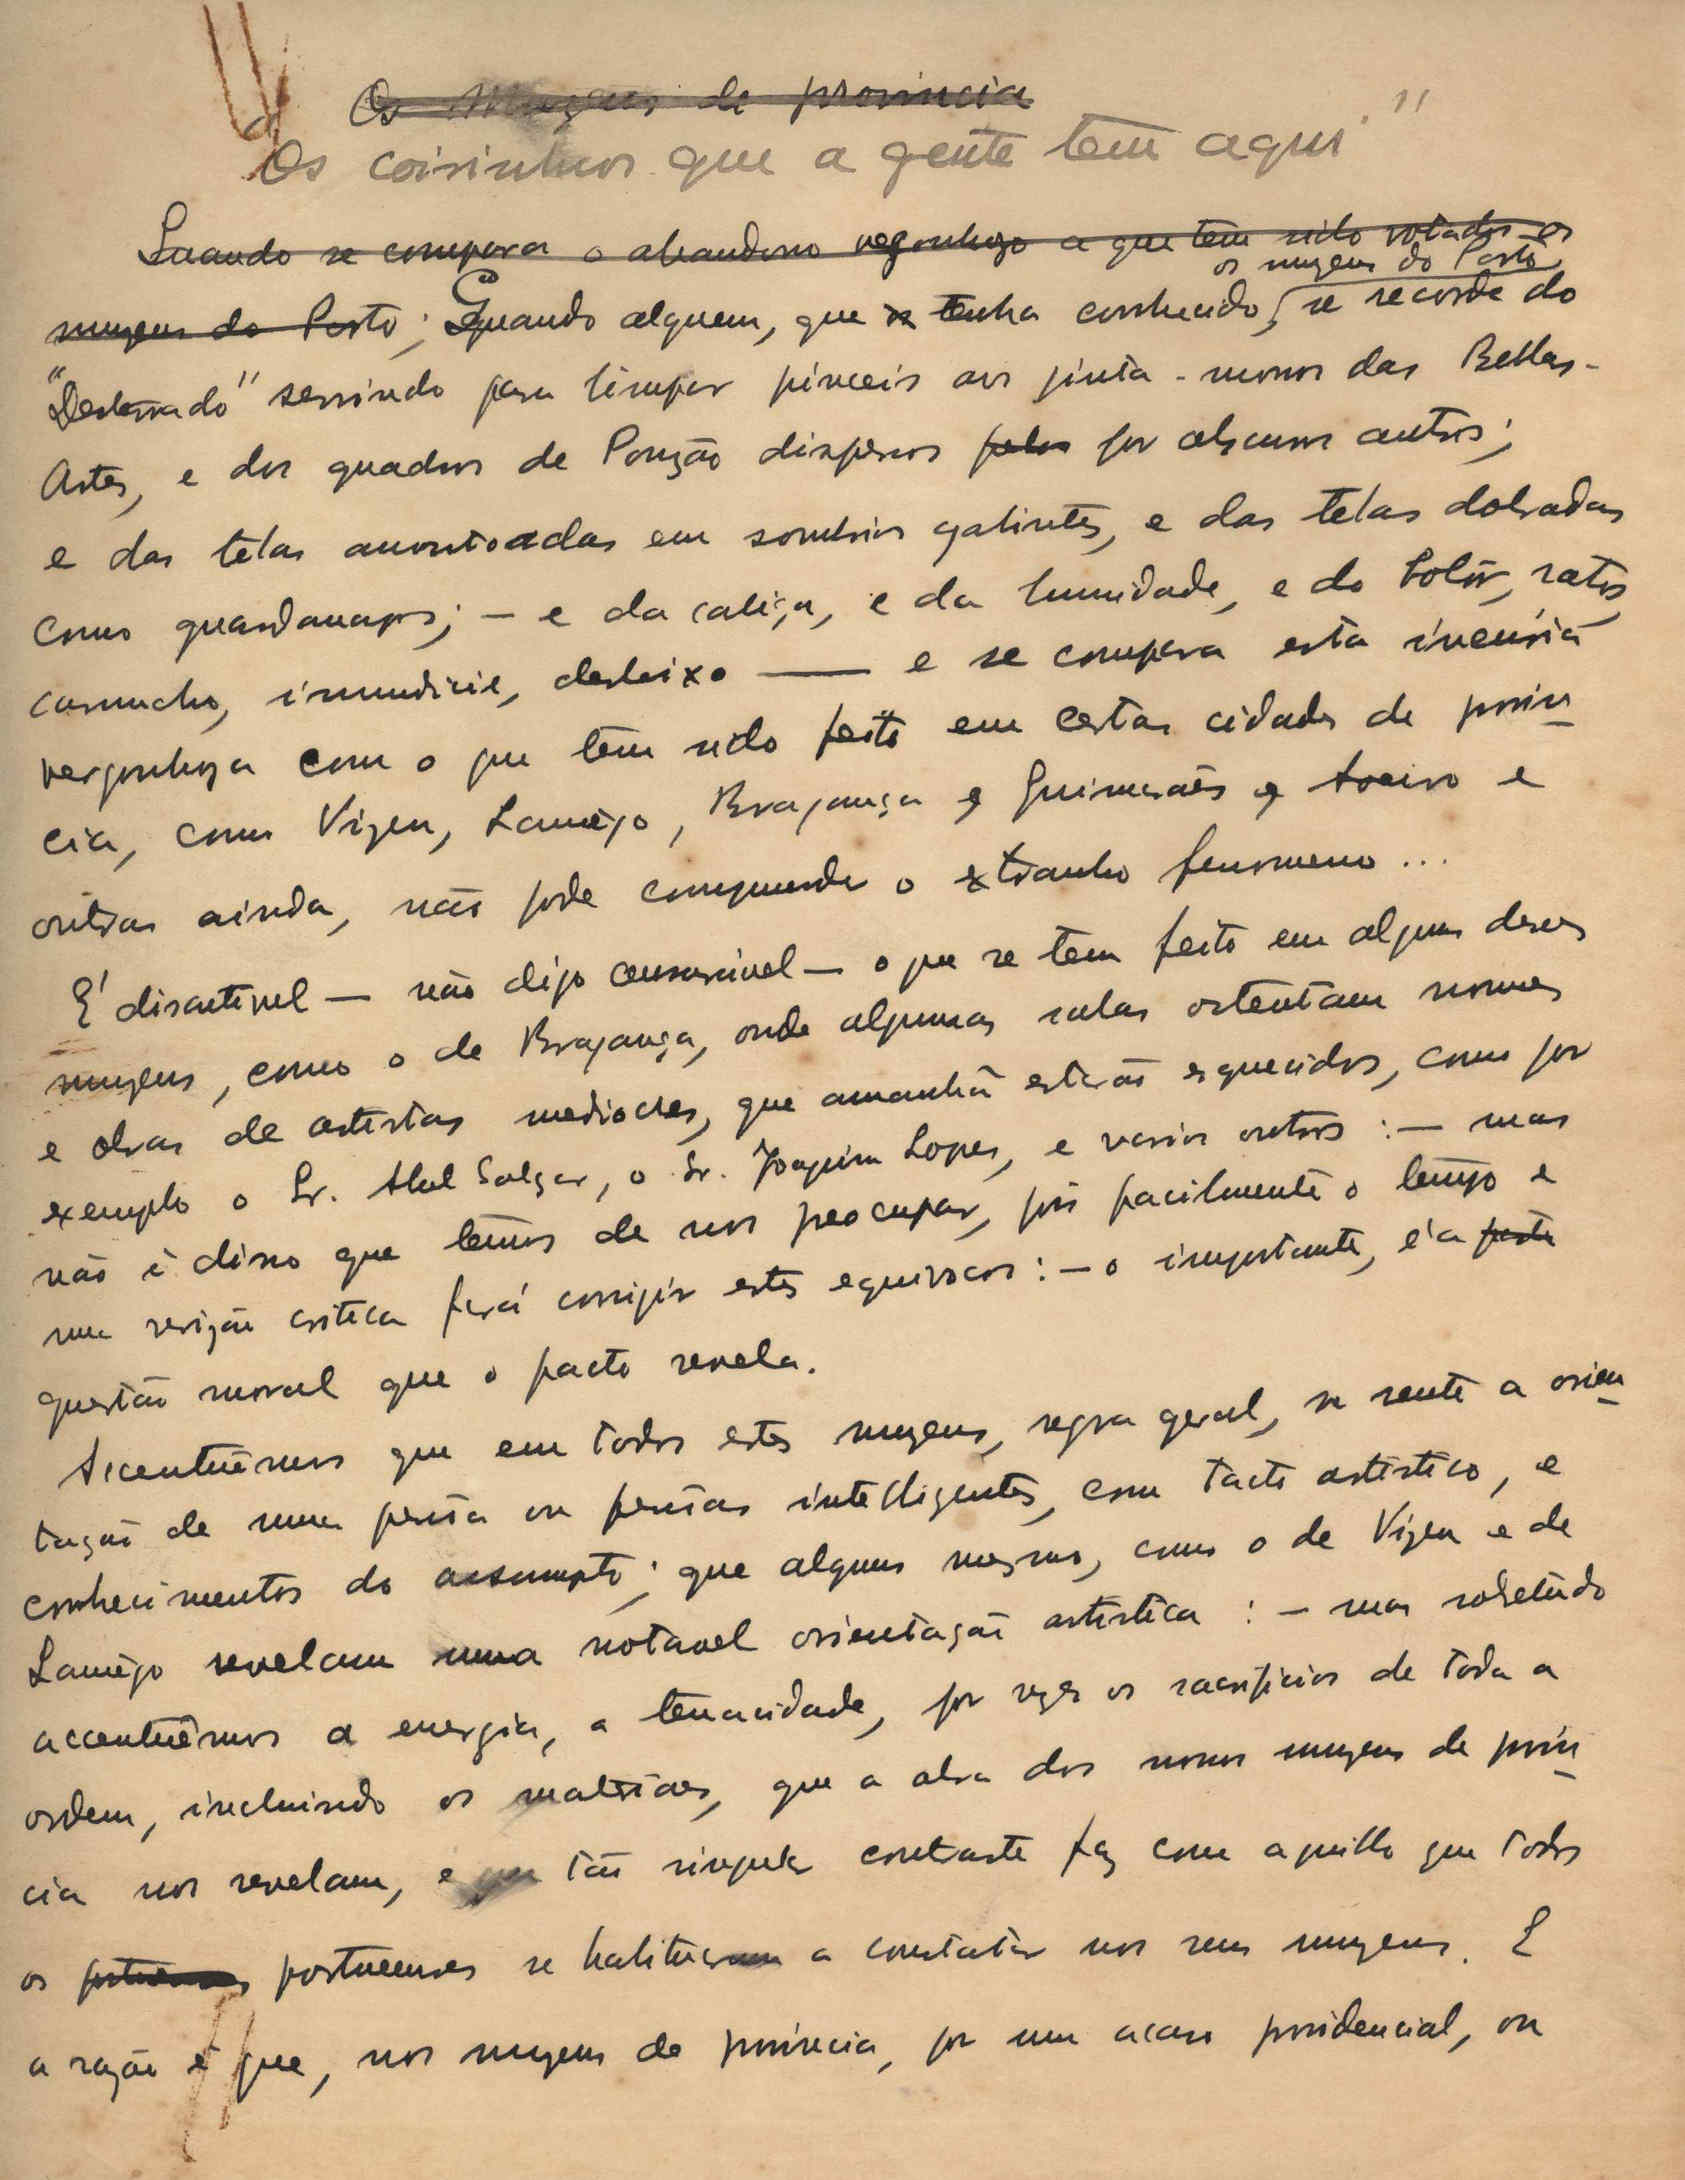 Os Muzeus de provincia
"As coisinhas que a gente tem aqui"
Quando se compara o abandono vergonhozo a que têm sido votados os
muzeus do Porto; Quando alguem, que tenha conhecido, os muzeus do Porto, se recorde do
"Desterrado" servindo para limpar pinceis aos pinta-monos das Bellas-
Artes, e dos quadros de Pouzão dispersos pelos por alguns antros;
e das telas amontoadas em sombrios gabinetes, e das telas dobradas
como guardanapos; — e da caliça, e da humidade, e do bolôr, ratos,
caruncho, immundicie, desleixo — e se compara esta incúria
vergonhoza com o que tem sido feito em certas cidades de provin-
cia, como Vizeu, Lamêgo, Bragança e Guimarães e Aveiro e
outras ainda, não pode comprender o extranho fenomeno...
E' discutivel — não digo censuravel — o que se tem feito em alguns desses
muzeus, como o de Bragança, onde algumas salas ostentam nomes
e obras de artistas mediocres, que amanhã estarão esquecidos, como por
exemplo o Sr. Abel Salazar, o Sr. Joaquim Lopes, e varios outros: — mas
não é disso que temos de nos preocupar, pois facilmente o tempo e
uma revizão critica fará corrigir estes equivocos: — o importante, é a
questão moral que o facto revela.
Accentuêmos que em todos estes muzeus, regra geral, se sente a orien-
tação de uma pessôa ou pessôas intelligentes, com tacto artistico, e
conhecimentos do assumpto; que alguns mesmo, como o de Vizeu e de
Lamêgo revelam uma notavel orientação artistica: — mas sobretudo
accentuêmos a energia, a tenacidade, por vezes os sacrificios de toda a
ordem, incluindo os materiaes, que a obra dos nossos muzeus de provin-
cia nos revelam, e que tão singular contraste faz com aquillo que todos
os portuenses se habituaram a constatar nos seus muzeus. E
a razão é que, nos muzeus de provincia, por um acaso providencial, ou